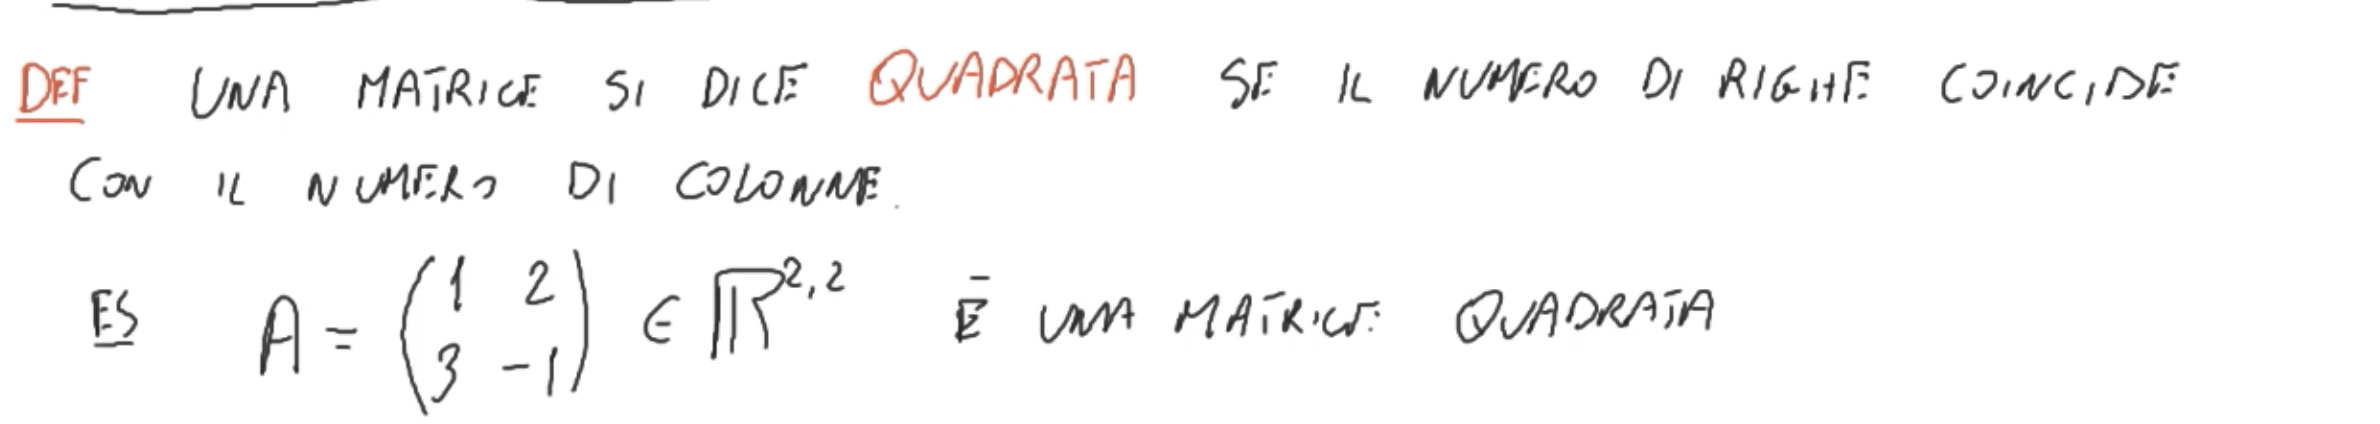 DEF UNA MATRICE SI DICE QUADRATA SE IL NUMERO DI RIGHE COINCIDE
CON IL NUMERO DI COLONNE.
ES A = (1 2; 3 -1) ∈ ℝ^{2,2} È UNA MATRICE QUADRATA